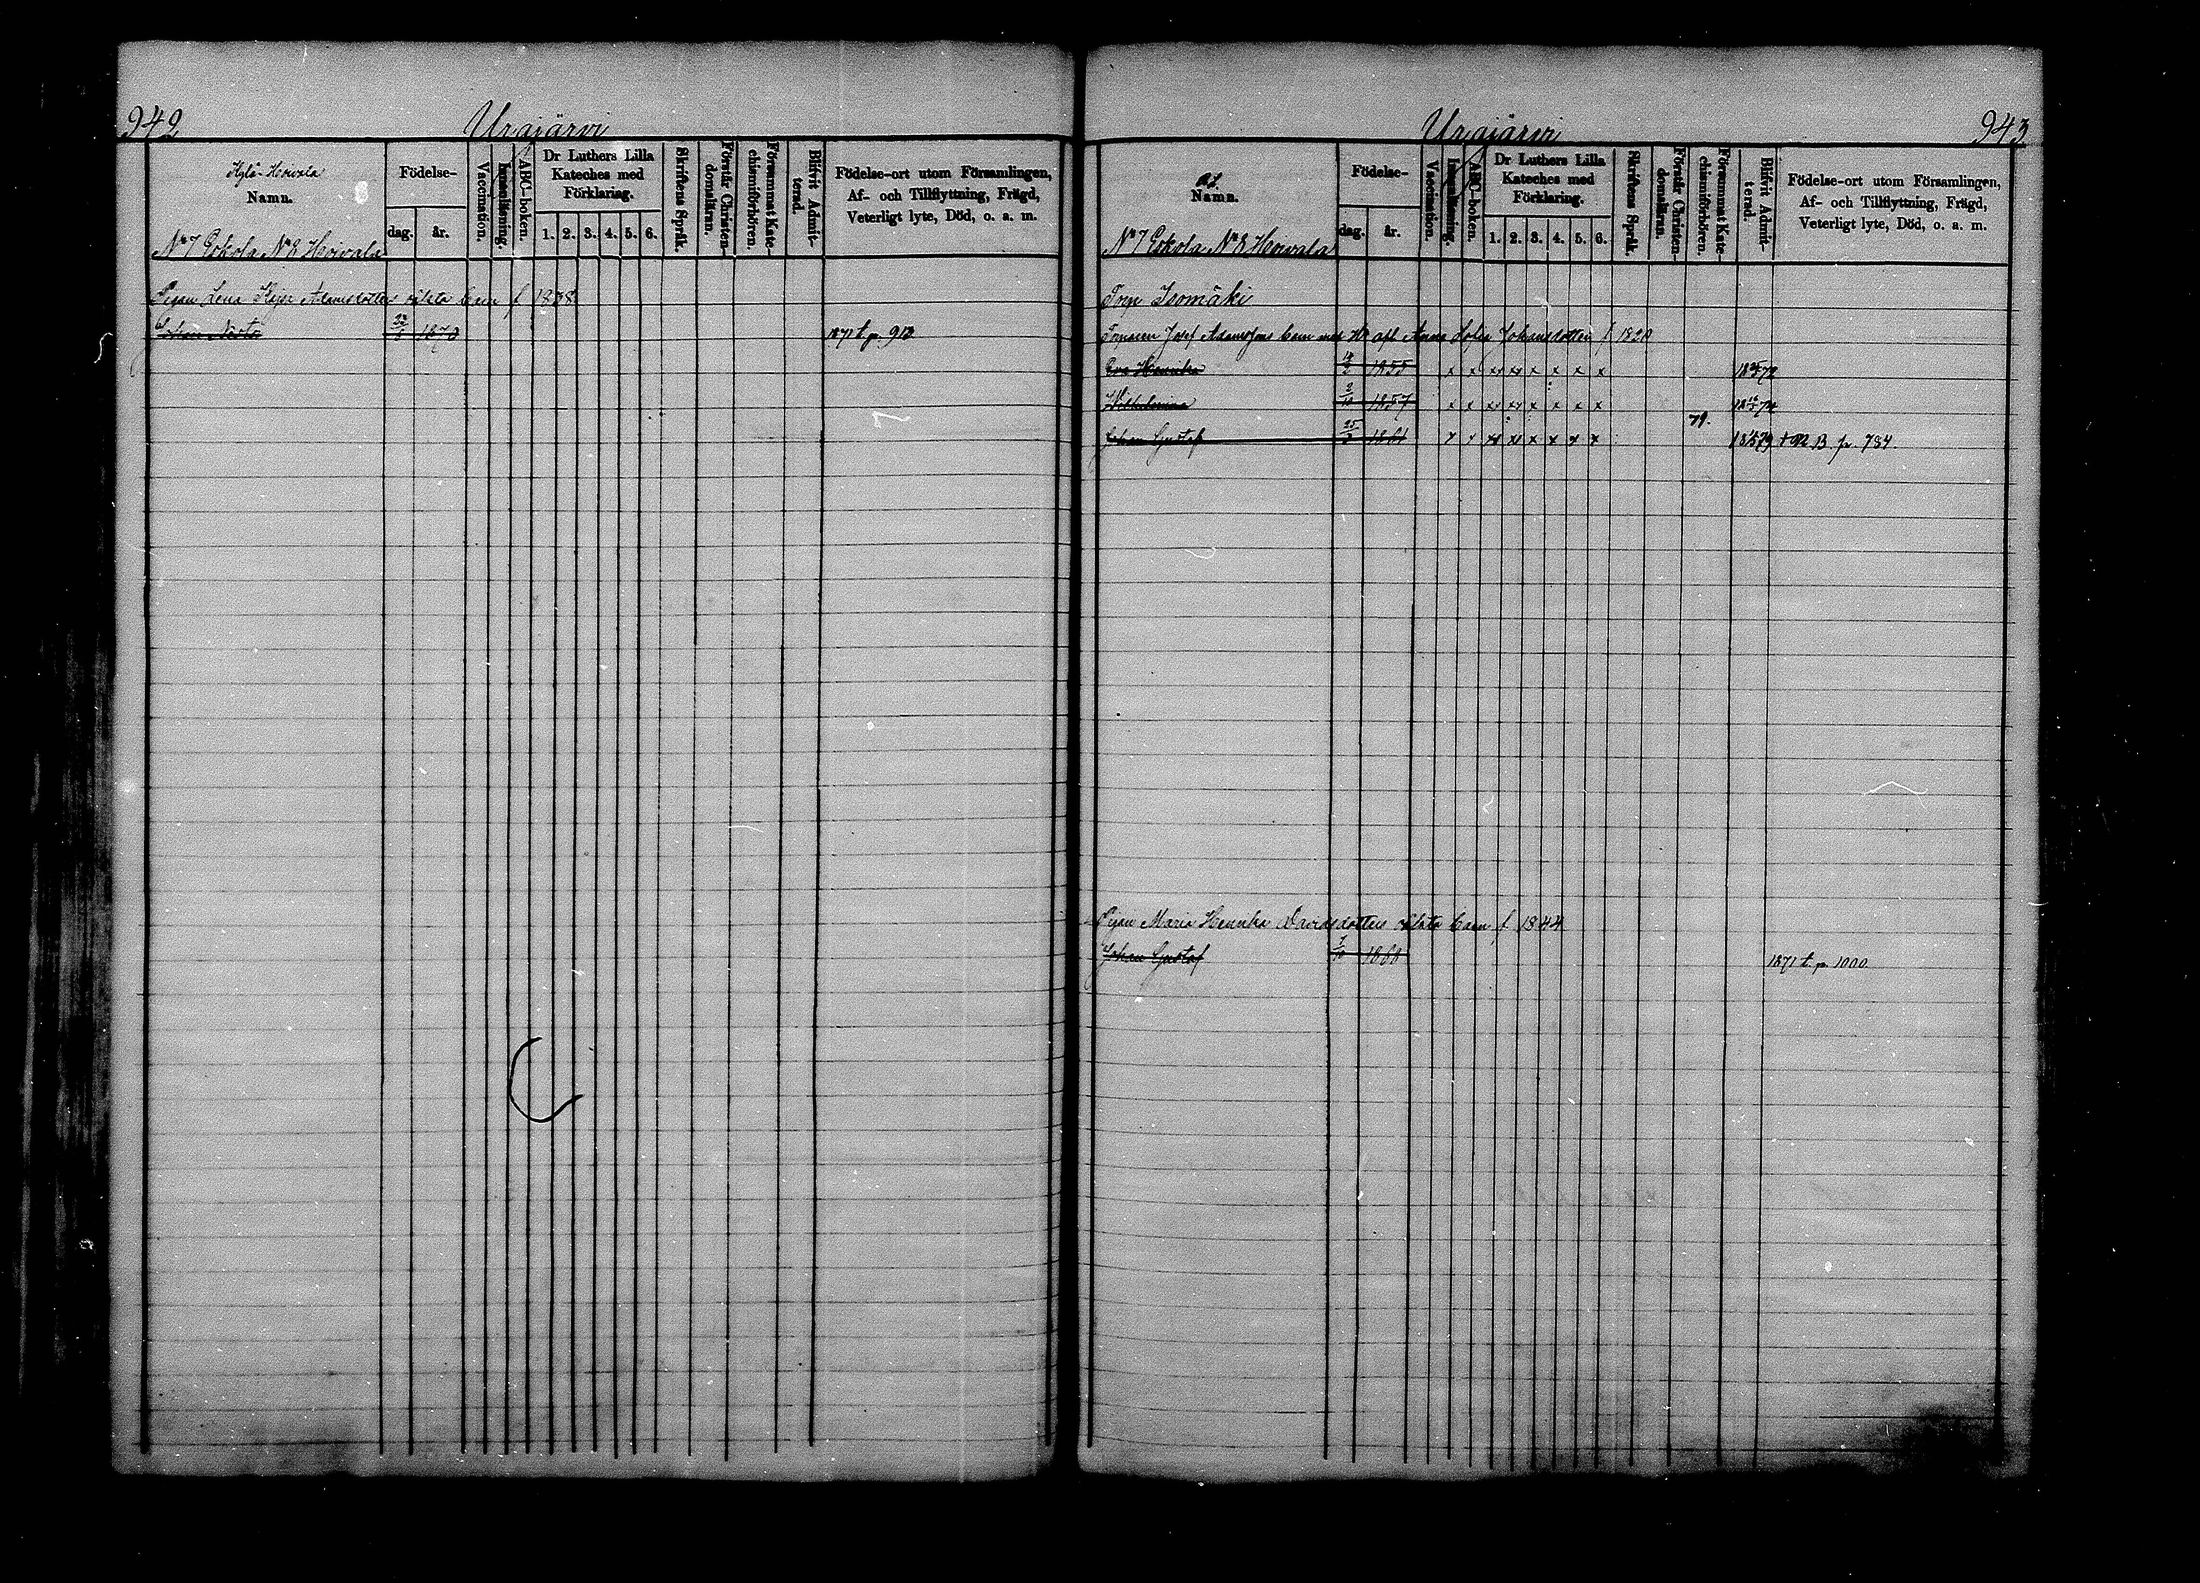 942
Urajärvi
Kylä-Hoivala
Namn.
Födelse-
dag. år.
Vaccination.
Innanläsning.
ABC-boken.
Dr Luthers Lilla Kateches med Förklaring.
1. 2. 3. 4. 5. 6.
Skriftens Språk.
Förstår Christendomsläran.
Försummat Katechismiförhören.
Blifvit Admitterad.
Födelse-ort utom Församlingen,
Af- och Tillflyttning, Frägd,
Veterligt lyte, Död, o. a. m.
No 7 Eskola No 8 Hoivala
Pigan Lena Kajsa Adamsdotters oäkta barn f 1838
Johan 1870 1871 t. p. 913
943
Urajärvi
Namn.
Födelse-
dag. år.
Vaccination.
Innanläsning.
ABC-boken.
Dr Luthers Lilla Kateches med Förklaring.
1. 2. 3. 4. 5. 6.
Skriftens Språk.
Förstår Christendomsläran.
Försummat Katechismiförhören.
Blifvit Admitterad.
Födelse-ort utom Församlingen,
Af- och Tillflyttning, Frägd,
Veterligt lyte, Död, o. a. m.
No 7 Eskola No 8 Hoivala
Torp Isomäki
Torparen Josef Adamssons barn med afl Anna Sofia Johansdotter f 1820
Eva Henrika 1855 x x x x x x x x
Wilhelmina 2/10 1857 x x x x x x x x
Johan Gustaf 25/3 1861 x x x x x x x x 79. B. p. 784.
Pigan Maria Henrika Davidsdotters oäkta barn f 1844
Johan Gustaf 1871 t. p. 1000